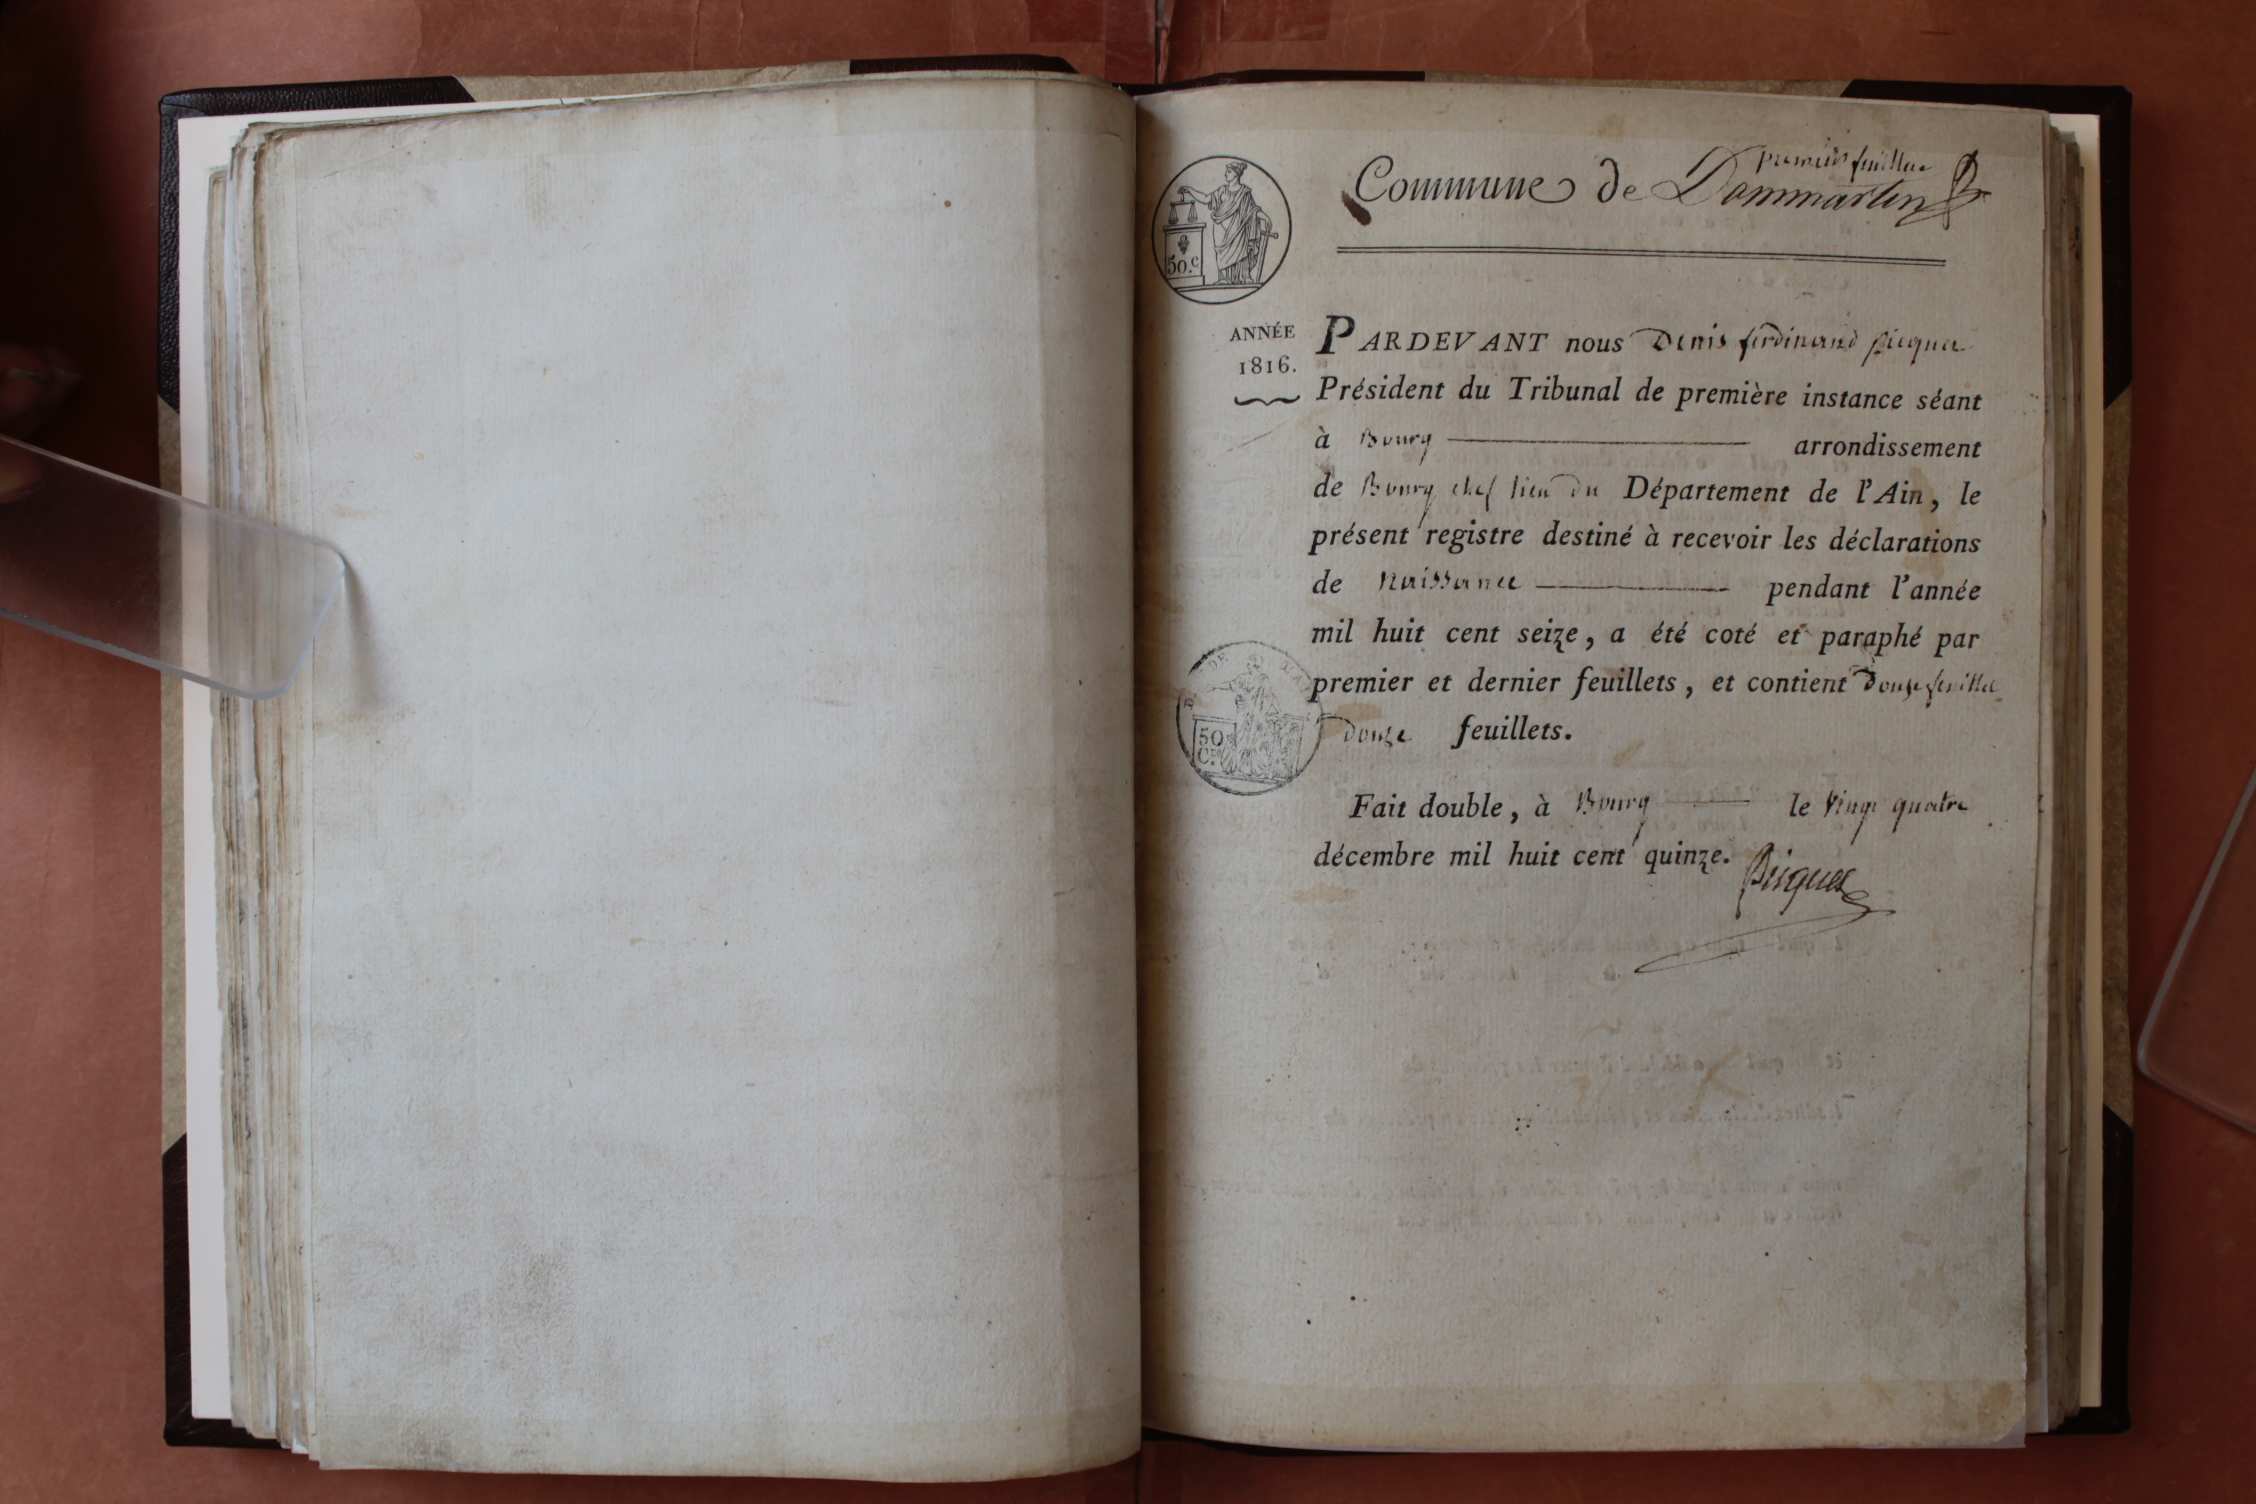 premier feuillet
Commune de Dommartin
50.c
ANNÉE
1816.
PARDEVANT nous Denis ferdinand picquet
Président du Tribunal de première instance séant
à Bourg arrondissement
de Bourg chef lieu du Département de l'Ain, le
présent registre destiné à recevoir les déclarations
de Naissance pendant l'année
mil huit cent seize, a été coté et paraphé par
premier et dernier feuillets, et contient douze feuillet
50
C.
douze feuillets.
Fait double, à Bourg le vingt quatre
décembre mil huit cent quinze.
Picquet